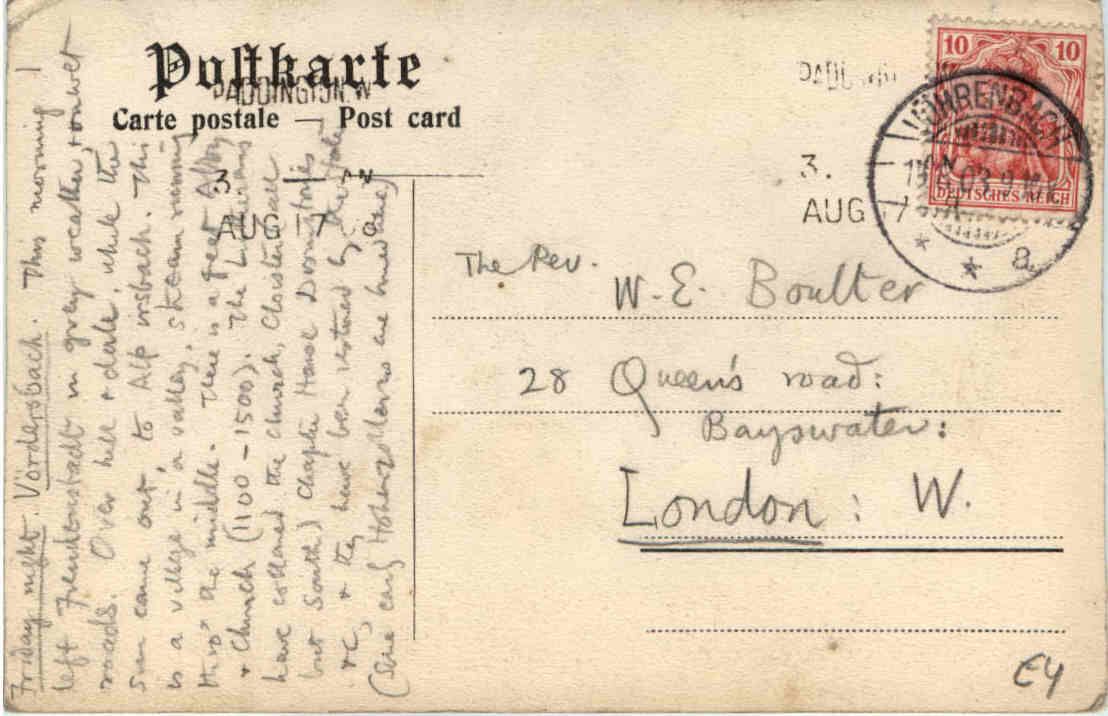 Postkarte
Carte postale — Post card
PADDINGTON W
3. — PM
AUG 17
PADDINGTON
3.
AUG 17
10 10
DEUTSCHES REICH
VÖHRENBACH
a.
The Rev.
W. E. Boulter
28 Queen's road:
Bayswater:
London: W.
E4
Friday night. Vordersbach. This morning I
left Freudenstadt in grey weather & on wet
roads. Over hill & dale, while the
sun came out, to Alpirsbach. This
is a village in a valley, stream running
thro' the middle. There is a great Abbey
& Church (1100 – 1500). The Lutherans
have collared the Church, Cloister (all
but South) Chapter House Dormitories
&c, & they have been restored by the State
(Some early Hohenzollerns are buried here)